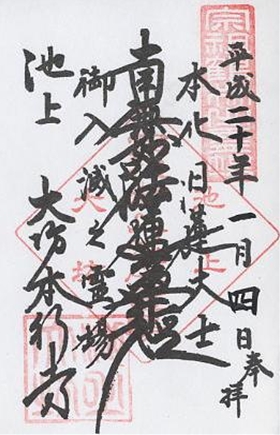 平成二十年一月四日奉拝
本化日蓮大士
南無妙法蓮華経
御入滅之霊場
池上
大坊本行寺